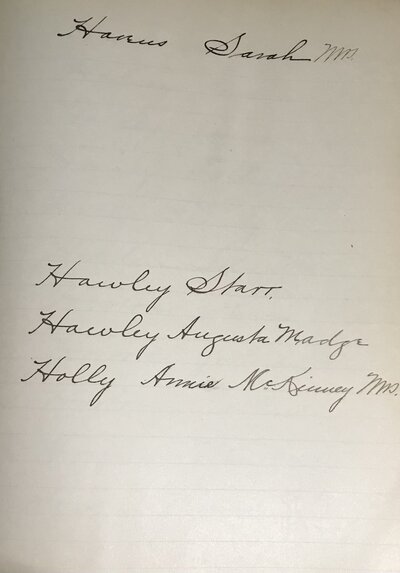 Havens Sarah Mrs.
Hawley Starr.
Hawley Augusta Madge
Holly Annie McKinney Mrs.